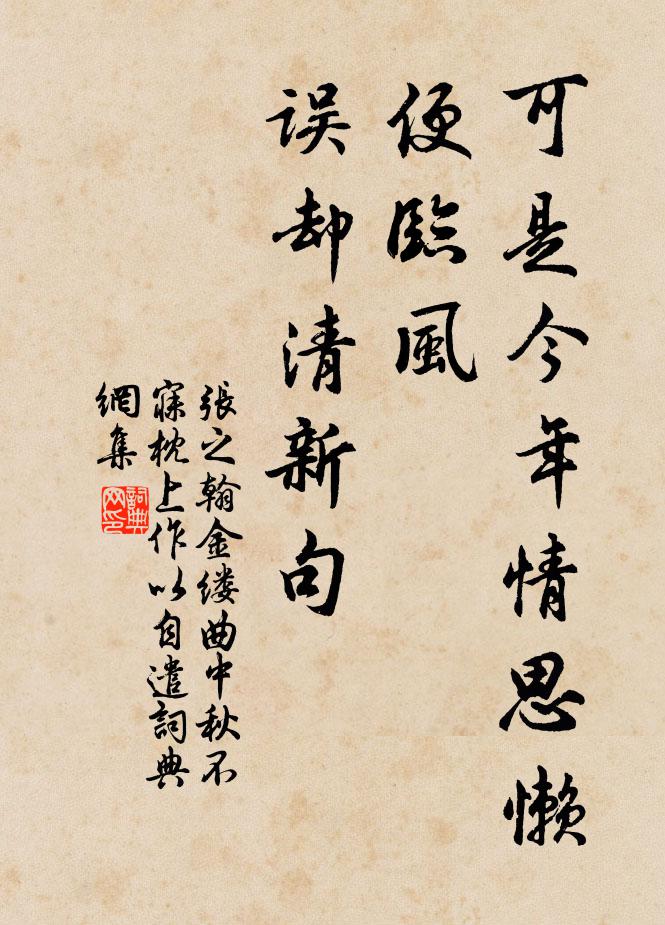 可是今年情思懒
便臨風
误却清新句
張之翰金缕曲中秋不
寐枕上作以自遣詞典
網集
詞典
网印